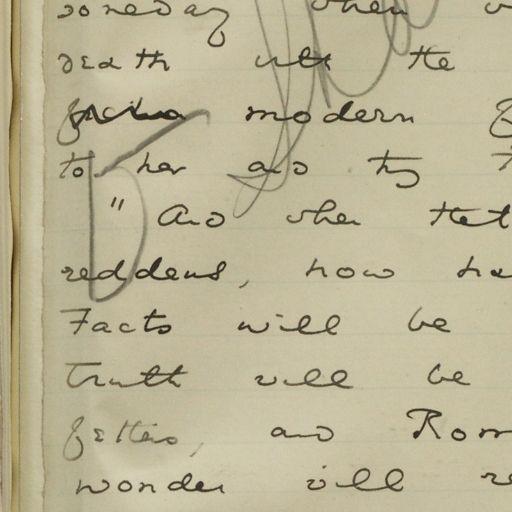 someday when
death into the
modern
to her and try
" And when that
reddens, how ha
Facts will be
Truth will be
fetters, and Rom
wonder will re